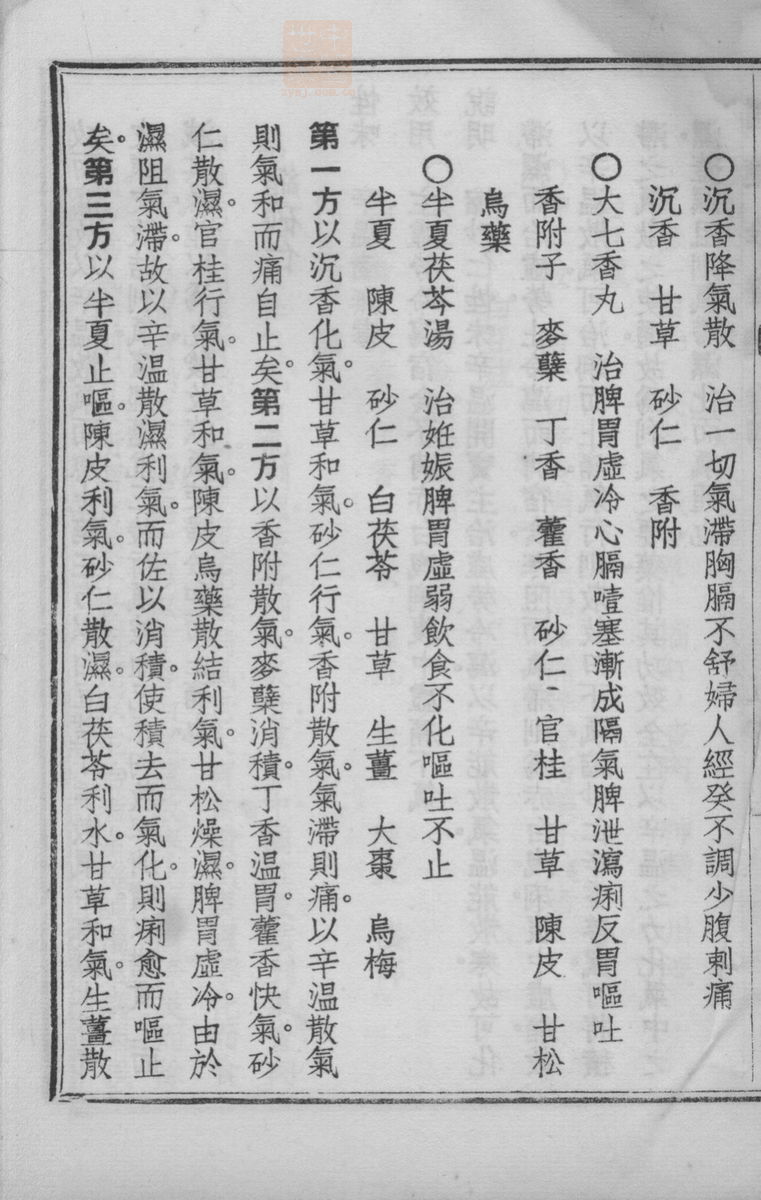 〇沉香降氣散　治一切氣滯胸膈不舒婦人經癸不調少腹刺痛
沉香　甘草　砂仁　香附
〇大七香丸　治脾胃虛冷心膈噎塞漸成隔氣脾泄瀉痢反胃嘔吐
香附子　麥櫱　丁香　藿香　砂仁、官桂　甘草　陳皮　甘松
烏藥
〇半夏茯苓湯　治姙娠脾胃虛弱飲食不化嘔吐不止
半夏　陳皮　砂仁　白茯苓　甘草　生薑　大棗　烏梅
第一方以沉香化氣。甘草和氣。砂仁行氣。香附散氣。氣滯則痛。以辛温散氣
則氣和而痛自止矣。第二方以香附散氣。麥櫱消積。丁香温胃。藿香快氣。砂
仁散濕。官桂行氣。甘草和氣。陳皮烏藥散結利氣。甘松燥濕。脾胃虛冷。由於
濕阻氣滯。故以辛温散濕利氣。而佐以消積。使積去而氣化。則痢愈而嘔止
矣。第三方以半夏止嘔。陳皮利氣。砂仁散濕。白茯苓利水。甘草和氣。生薑散